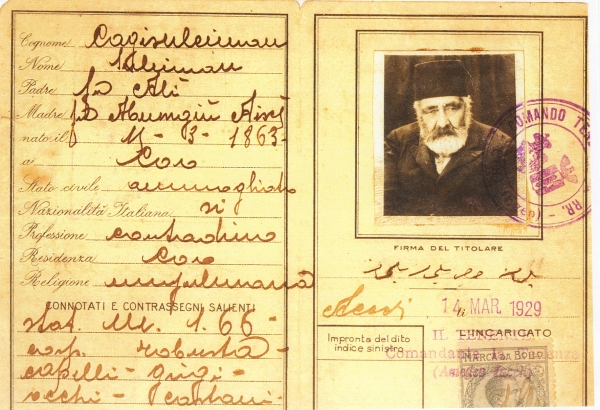 Cognome Cagisuleiman
Nome Sleiman
Padre fu Alì
Madre fu
nato il 11-3-1863-
a Coo
Stato civile ammogliato
Nazionalità Italiana si
Professione contadino
Residenza Coo
Religione musulmana
CONNOTATI E CONTRASSEGNI SALIENTI
stat. Mt. 1.66-
corp. robusta-
capelli- grigi-
occhi- castani-
COMANDO
RR.
FIRMA DEL TITOLARE
14 MAR. 1929
Impronta del dito
indice sinistro
L'INCARICATO
IL
Comandante
MARCA DA BOLLO